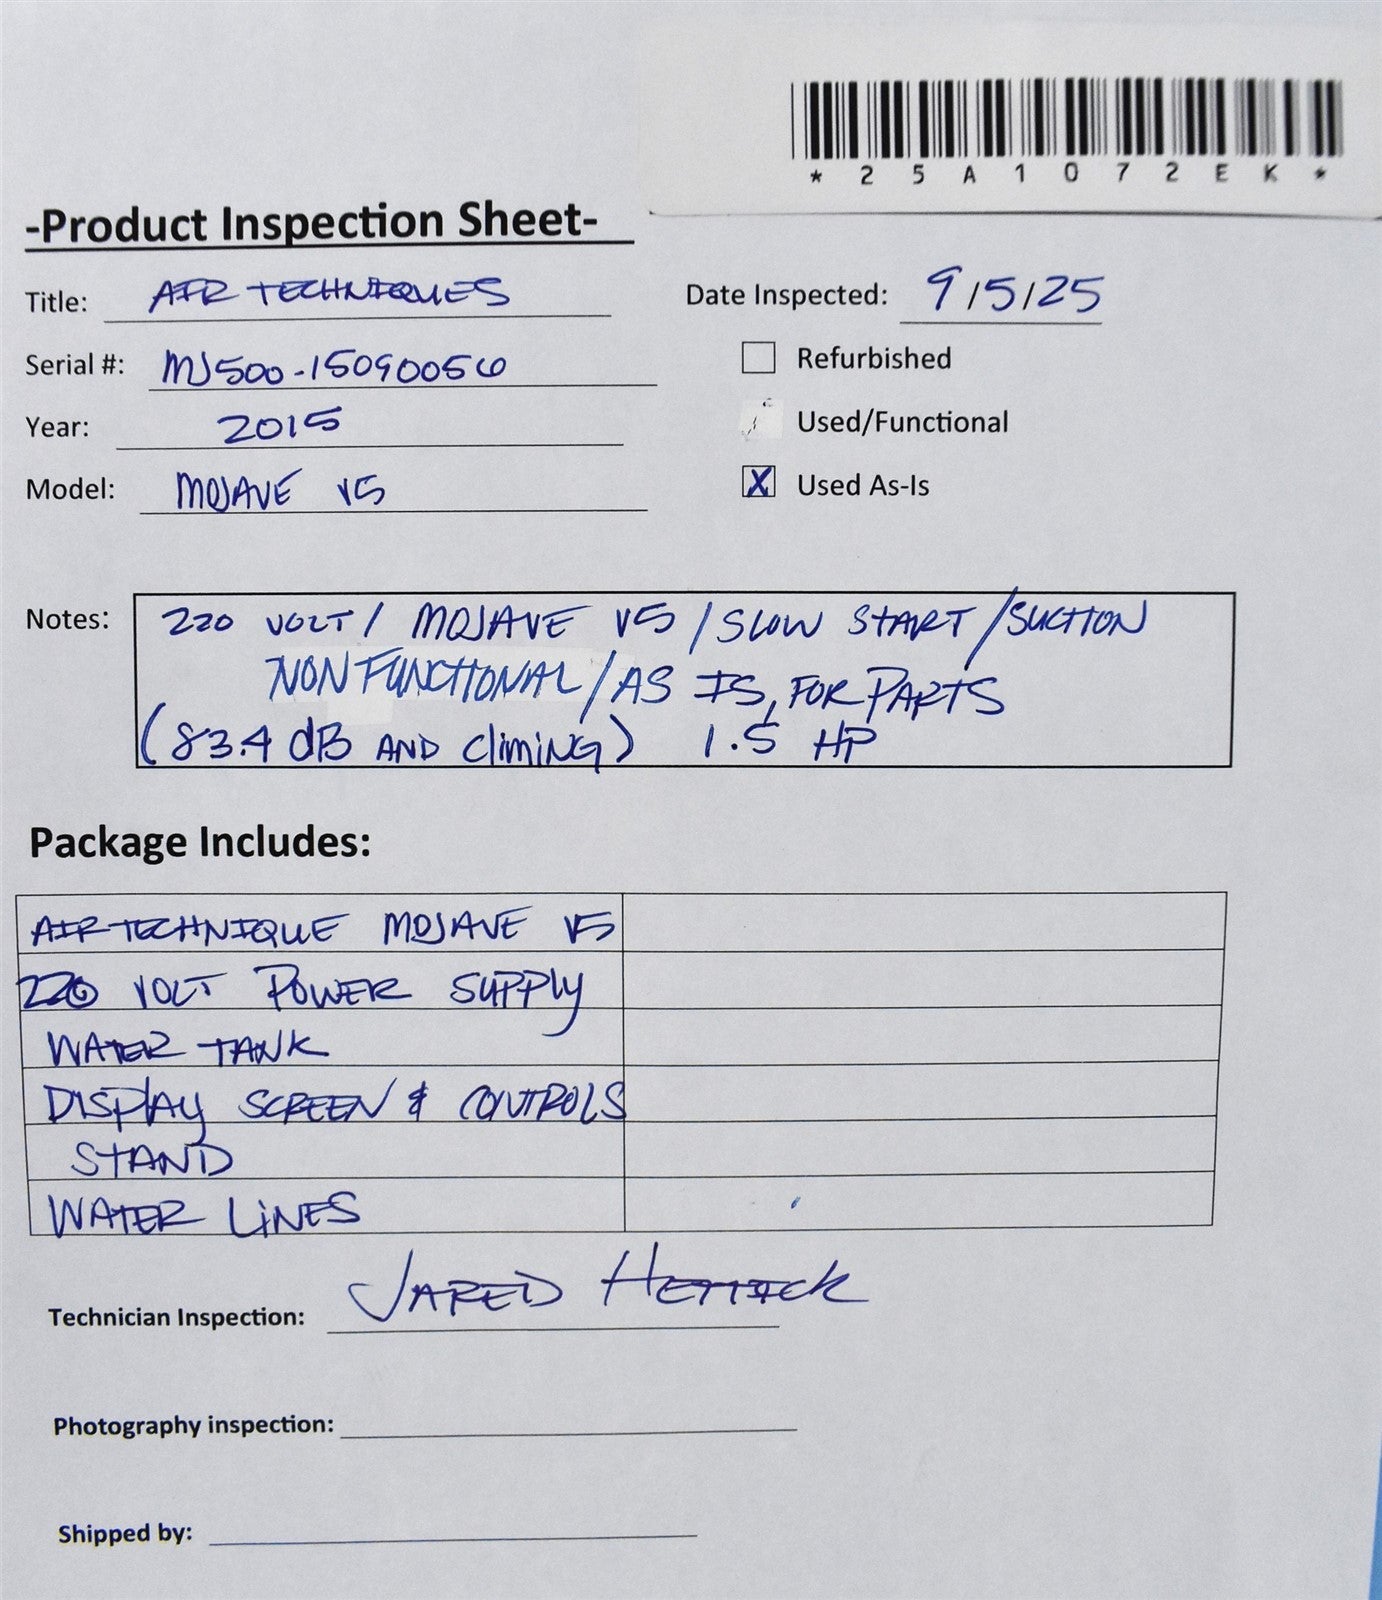 *25A1072EK*
-Product Inspection Sheet-
Title: AIR TECHNIQUES
Date Inspected: 9/5/25
Serial #: MJ500-15090056
Refurbished
Year: 2015
Used/Functional
Model: MOJAVE V5
X Used As-Is
Notes: 220 VOLT / MOJAVE V5 / SLOW START / SUCTION
NON FUNCTIONAL / AS IS, FOR PARTS
(83.4 dB AND CLIMING) 1.5 HP
Package Includes:
AIR TECHNIQUE MOJAVE V5
220 VOLT POWER SUPPLY
WATER TANK
DISPLAY SCREEN & CONTROLS
STAND
WATER LINES
Technician Inspection: JARED
Photography inspection:
Shipped by: